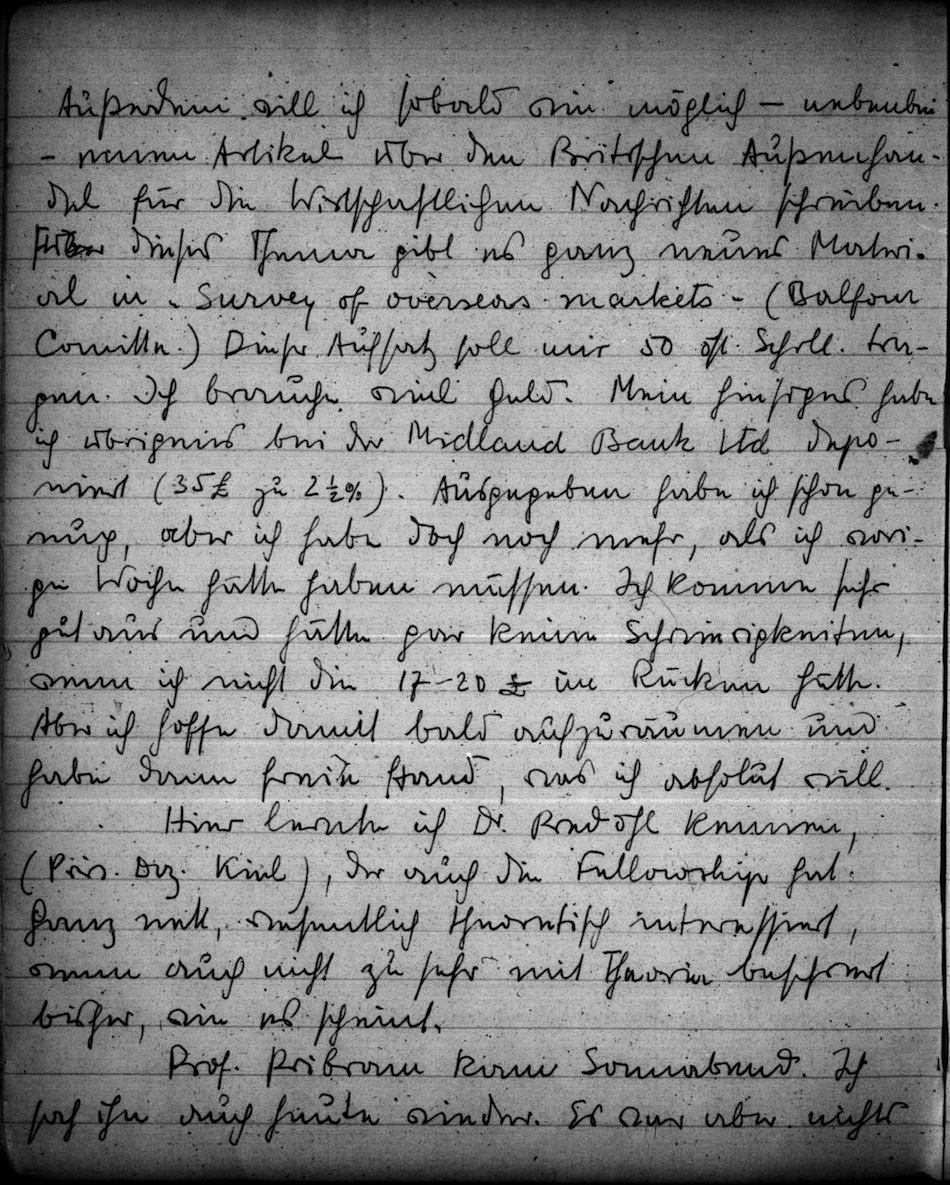 Außerdem will ich sobald wie möglich – nebenbei
– einen Artikel über den Britischen Außenhan-
del für die Wirtschaftlichen Nachrichten schreiben.
Über dieses Thema gibt es ganz neues Materi-
al in „Survey of overseas markets“ (Balfour
Comitte.) Dieser Aufsatz soll mir 50 öst. Schill. tra-
gen. Ich brauche viel Geld. Mein hiesiges habe
ich übrigens bei der Midland Bank Ltd depo-
niert (35£ zu 2½%). Ausgegeben habe ich schon ge-
nug, aber ich habe doch noch mehr, als ich vori-
ge Woche hätte haben müssen. Ich komme sehr
gut aus und hätte gar keine Schwierigkeiten,
wenn ich nicht die 17–20 £ im Rücken hätte.
Aber ich hoffe damit bald aufzuräumen und
habe dann freie Hand, was ich absolut will.
Hier lernte ich Dr. Predöhl kennen,
(Priv. Doz. Kiel), der auch die Fellowship hat.
Ganz nett, wesentlich theoretisch interessiert,
wenn auch nicht zu sehr mit Theorie beschwert
bisher, wie es scheint.
Prof. Pribram kam Sonnabend. Ich
sah ihn auch heute wieder. Es war aber nichts